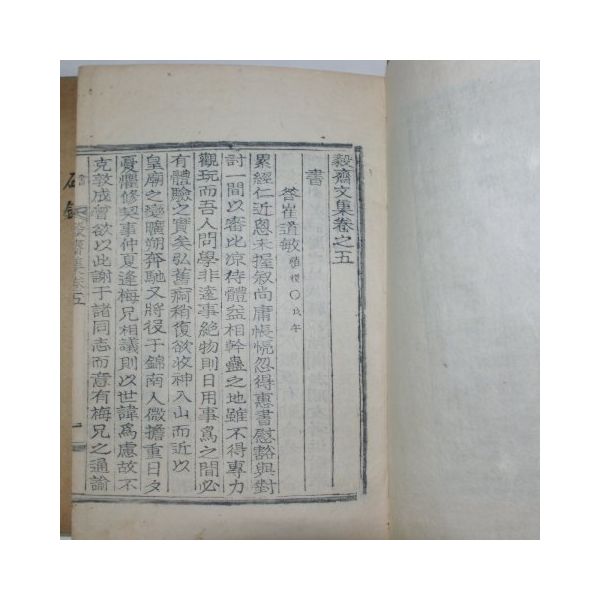 毅齋文集卷之五
書
答崔道敏 戊午
累經仁近恩未握叙尚庸悵慌忽得惠書慰豁與對
討一間以審比凉待體益相幹蠱之地雖不得專力
觀玩而吾人問學非遠事絶物則日用事爲之間必
有體驗之實矣弘舊痾稍復欲收神入山而近以
皇廟之變曠朔奔馳又將役于錦南人微擔重日夕
憂懼修契事仲夏逢梅兄相議則以世諱爲慮故不
克敦成曾欲以此謝于諸同志而意有梅兄之通諭